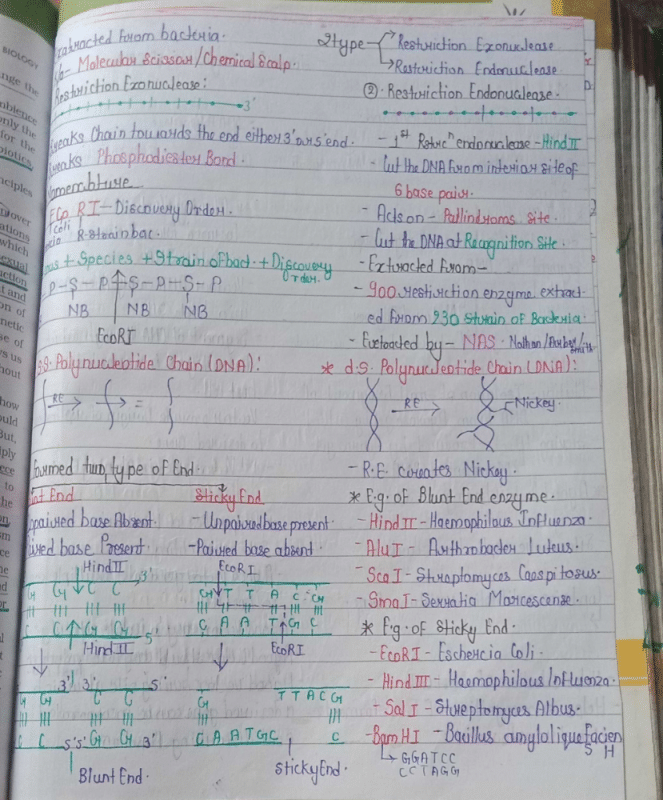 Extracted from bacteria.
Molecular Scissor/Chemical Scalp.
Restriction Exonuclease:
3'
breaks Chain towards the end either 3' or 5' end.
breaks Phosphodiester Bond.
EcoRI - Discovery Order.
coli R-strain bac.
+ Species + Strain of bact. + Discovery
Order.
P-S-P-S-P-S-P
NB NB NB
EcoRI
S.S. Polynucleotide Chain (DNA):
RE =
formed two type of End.
Sticky End
Unpaired base Absent. - Unpaired base present.
Paired base Present. - Paired base absent.
Hind II EcoRI
G C C 3' G T T A C G
C G G 5' C A A T G C
Hind II EcoRI
3' 3' 5' T T A C G
G G C C G
C C 5' 5' G G 3' C A A T G C C
Blunt End. Sticky End.
2 type Restriction Exonuclease
Restriction Endonuclease
② Restriction Endonuclease.
- 1st Restricn endonuclease - Hind II
- Cut the DNA from interior site of
6 base pair.
- Acts on - Pallindroms site.
- Cut the DNA at Recognition Site.
- Extracted from -
- 900 restriction enzyme extract-
ed from 230 Strain of Bacteria.
- Extracted by - NAS. Nathan/Arber/Smith.
* d.S. Polynucleotide Chain (DNA):
RE Nickey.
- R.E creates Nickey.
* E.g. of Blunt End enzyme.
- Hind II - Haemophilous Influenza.
- Alu I - Arthrobacter Luteus.
- Sca I - Straptomyces Caespitosus.
- Sma I - Serratia Marcescense.
* E.g. of Sticky End.
- EcoRI - Eschercia Coli.
- Hind III - Haemophilous Influenza.
- Sal I - Streptomyces Albus.
- Bam HI - Bacillus amyloliquefacien
S H
GGATCC
CCTAGG